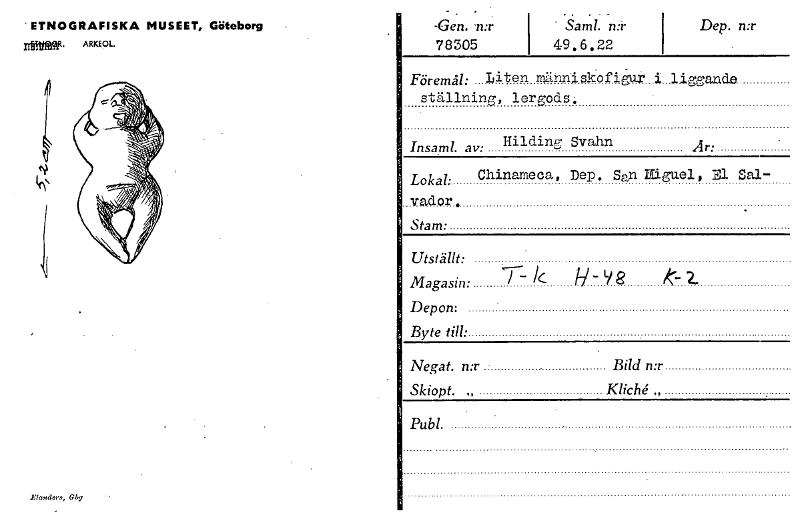 ETNOGRAFISKA MUSEET, Göteborg
ETNOGR. ARKEOL.
5,2 cm
Elanders, Gbg
Gen. n:r Saml. n:r Dep. n:r
78305 49.6.22
Föremål: Liten människofigur i liggande
ställning, lergods.
Insaml. av: Hilding Svahn År:
Lokal: Chinameca, Dep. San Miguel, El Sal-
vador.
Stam:
Utställt:
Magasin: T-k H-48 K-2
Depon:
Byte till:
Negat. n:r Bild n:r
Skiopt. „ Kliché „
Publ.